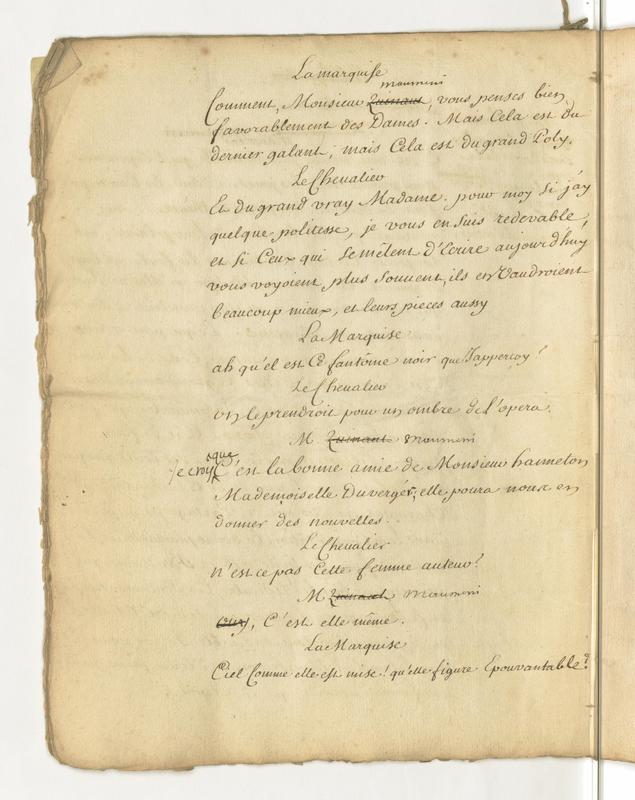 La marquise
moumini
Comment, Monsieur Quinaut, vous pensés bien
favorablement des Dames. Mais Cela est du
dernier galant, mais Cela est du grand Poly.
Le Chevalier
Et du grand vray Madame. pour moy si j'ay
quelque politesse, je vous en suis redevable,
et si Ceux qui se mêlent d'Ecrire aujourd'huy
vous voyoient plus souvent, ils en Vaudroient
beaucoup mieux, et leurs pieces aussy
La Marquise
ah qu'el est Ce fantôme noir que J'apperçoy!
Le Chevalier
on le prendroit pour un ombre de l'opera.
M. Quinaut moumini
je croy que C'est la bonne amie de Monsieur hanneton
Mademoiselle Duverger, elle poura nous en
donner des nouvelles.
Le Chevalier
n'est ce pas Cette femme auteur?
M Quinaut moumini
ouy, C'est elle même.
La Marquise
Ciel Comme elle est mise! qu'elle figure Epouvantable!